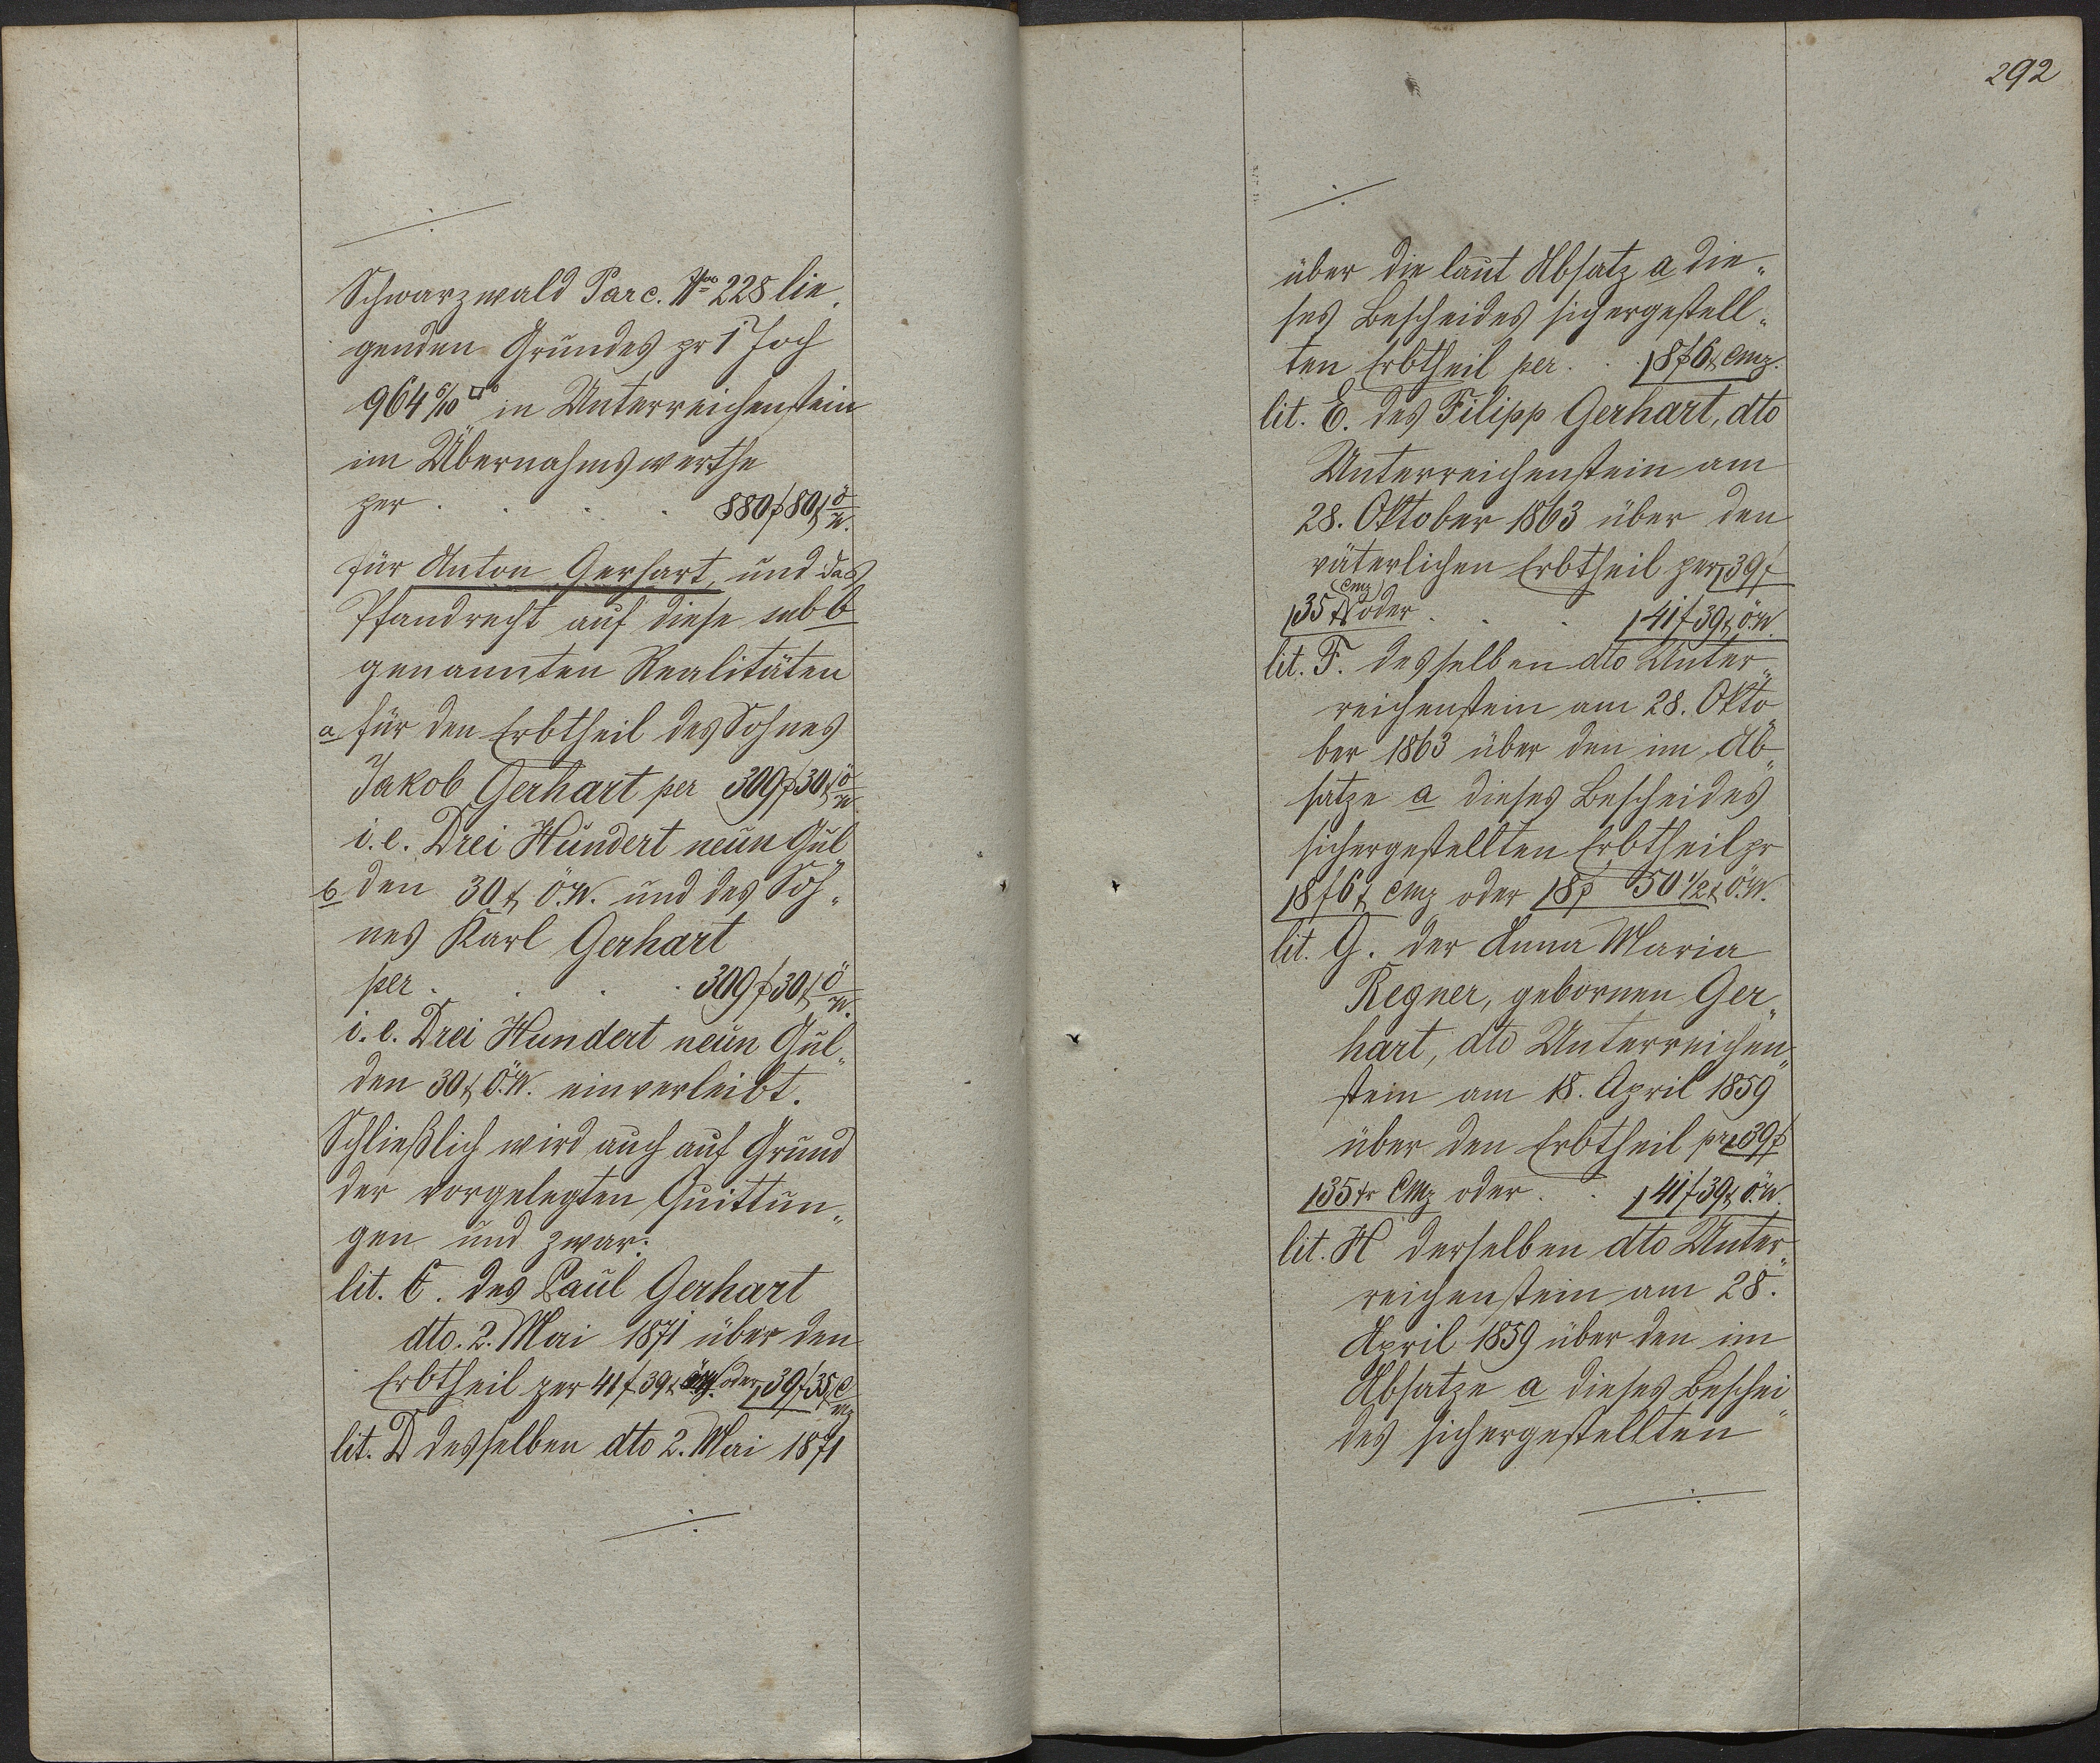 Schwarzwald Parc. Nro 228 lie„
genden Grundes pr 1 Joch
964 6/10 □° in Unterreichenstein
im Übernahmswerthe
per . . . . 880 f 80 x ö W.
für Anton Gerhart, und das
Pfandrecht auf diese sub b
genannten Realitäten
a für den Erbtheil des Sohnes
Jakob Gerhart per 309 f 30 x ö W
i. e. Drei Hundert neun Gul„
b den 30 x ö. W. und des Soh„
nes Karl Gerhart
per . . . . 309 f 30 x ö W.
i. e. Drei Hundert neun Gul„
den 30 x ö. W. einverleibt.
Schließlich wird auch auf Grund
der vorgelegten Quittun„
gen und zwar:
lit. C. des Paul Gerhart
dto. 2. Mai 1871 über den
Erbtheil per 41 f 39 x öW. oder 39 f 35 x C Mz
lit. D desselben dto 2. Mai 1871
292
über die laut Absatz a die„
ses Bescheides sichergestell„
ten Erbtheil per . . 18 f 6 x CMz.
lit. E. des Filipp Gerhart, dto
Unterreichenstein am
28. Oktober 1863 über den
väterlichen Erbtheil per 39 f
35 x CMz oder . . . 41 f 39 x ö. W.
lit. F. desselben dto Unter„
reichenstein am 28. Okto„
ber 1863 über den im Ab„
satze a dieses Bescheides
sichergestellten Erbtheil pr
18 f 6 x CMz oder 18 f 50 1/2 x ö. W.
lit. G. der Anna Maria
Regner, gebornen Ger„
hart, dto Unterreichen„
stein am 18. April 1859
über den Erbtheil pr 39 f
35 xr CMz oder . . 41 f 39 x ö. W.
lit. H derselben dto Unter„
reichenstein am 28.
April 1859 über den im
Absatze a dieses Beschei„
des sichergestellten